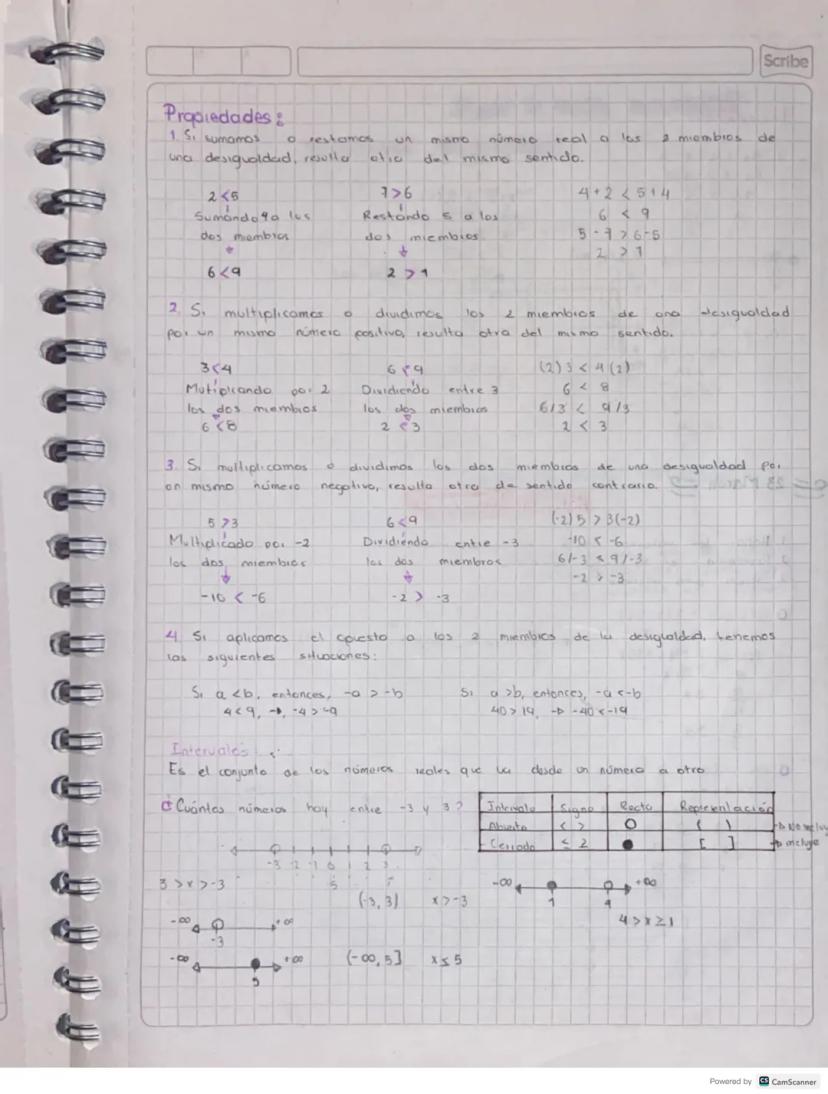 Scribe
Propiedades:
1. Si sumamos o restamos un mismo número real a los 2 miembros de
una desigualdad, resulta otra del mismo sentido.
2 < 5 7 > 6 4 + 2 < 5 + 4
Sumando 4 a los Restando 5 a los 6 < 9
dos miembros dos miembros 5 - 7 > 6 - 5
2 > 1
6 < 9 2 > 1
2. Si multiplicamos o dividimos los 2 miembros de una desigualdad
por un mismo número positivo, resulta otra del mismo sentido.
3 < 4 6 < 9 (2) 3 < 4 (2)
Mutiplicando por 2 Dividiendo entre 3 6 < 8
los dos miembros los dos miembros 6/3 < 9/3
6 < 8 2 < 3 2 < 3
3. Si multiplicamos o dividimos los dos miembros de una desigualdad por
un mismo número negativo, resulta otra de sentido contrario.
5 > 3 6 < 9 (-2) 5 > 3(-2)
Multiplicado por -2 Dividiendo entre -3 -10 < -6
los dos miembros los dos miembros 6/-3 < 9/-3
-2 > -3
-10 < -6 -2 > -3
4. Si aplicamos el opuesto a los 2 miembros de la desigualdad, tenemos
las siguientes situaciones:
Si a < b, entonces, -a > -b Si a > b, entonces, -a < -b
4 < 9, → -4 > -9 40 > 19, → -40 < -19
Intervalos
Es el conjunto de los números reales que va desde un número a otro
¿Cuántos números hay entre -3 y 3? Intervalo Signo Recta Representación
Abierto < > ○ ( ) → No incluy
Cerrado ≤ ≥ ● [ ] → incluye
-3 -2 -1 0 1 2 3
3 > x > -3 5
-∞ +∞
(-3, 3) x > -3 1 4
-∞ +∞ 4 > x ≥ 1
-3
-∞ +∞ (-∞, 5] x ≤ 5
5
Powered by CS CamScanner